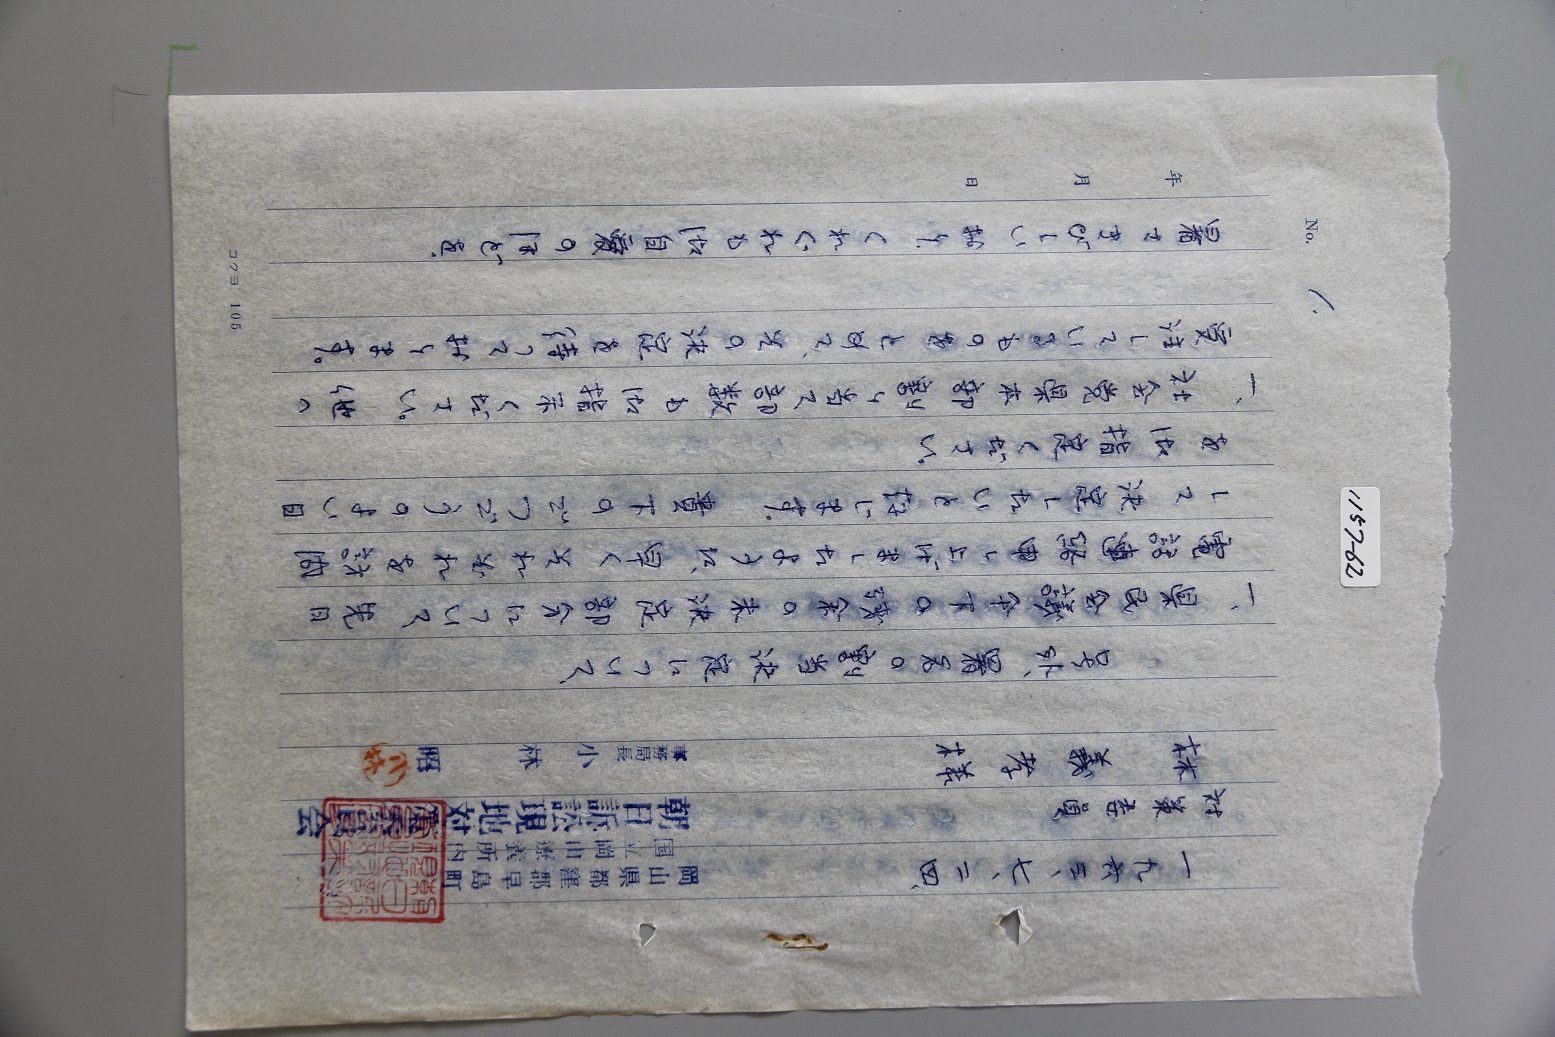 一九六三、七、二四、
対策委員
林 義孝 様
岡山県都窪郡早島町
国立岡山療養所内
朝日訴訟現地対策委員会
事務局長 小林 昭
号外、署名の割当決定について、
一、県民会議傘下の議会の未決定部分について、先日
電話連絡申し上げましたように、早く夫れ夫れを訪問
して決定したいと存じます。貴下のごつごうのよい日
を御指定ください。
一、社会党県本部割り当て部数も御指示ください。他に
受注しているものをとめて、先の決定を待って折ります。
暑さきびしい折り、くれぐれも御自愛のほどを。
No. 1.
年 月 日
コクヨ 105
1157-62